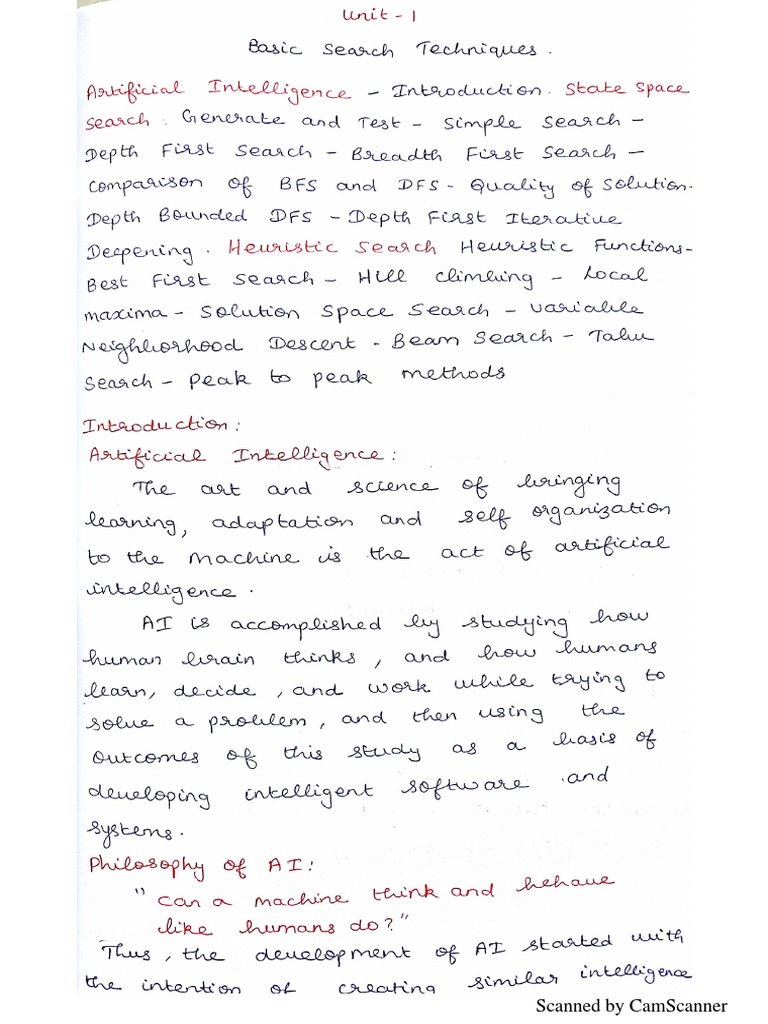 Unit - 1
Basic Search Techniques.
Artificial Intelligence - Introduction. State Space
Search. Generate and Test - Simple Search -
Depth First Search - Breadth First Search -
Comparison of BFS and DFS - Quality of Solution.
Depth Bounded DFS - Depth First Iterative
Deepening. Heuristic Search Heuristic Functions-
Best First Search - Hill climbing - Local
maxima - Solution Space Search - Variable
Neighborhood Descent - Beam Search - Tabu
Search - peak to peak methods
Introduction:
Artificial Intelligence:
The art and science of bringing
learning, adaptation and self organization
to the machine is the act of artificial
intelligence.
AI is accomplished by studying how
human brain thinks, and how humans
learn, decide, and work while trying to
solve a problem, and then using the
outcomes of this study as a basis of
developing intelligent software and
systems.
Philosophy of AI:
"can a machine think and behave
like humans do?"
Thus, the development of AI started with
the intention of creating similar intelligence
Scanned by CamScanner